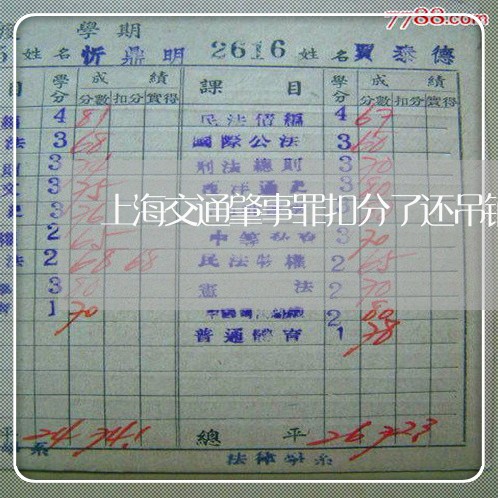 7788.com
學期
姓名 忻鼎明 2616 姓名 賈泰德
目 學分 成績 分數 扣分 實得 課目 學分 成績 分數 扣分 實得
4 81 民法債編 4 67
法 3 68 國際公法 3 60
3 刑法總則 3 70
3 75 西洋通史 3 80
3 76
上海交通肇事罪扣分了还吊销
2 65 3 70
法 2 68 68 民法物權 2 65
3 80 憲法 2 70
1 70 2 80
普通體育 1 78
平 24 74.1 總平 26 72.3
系 法律學系